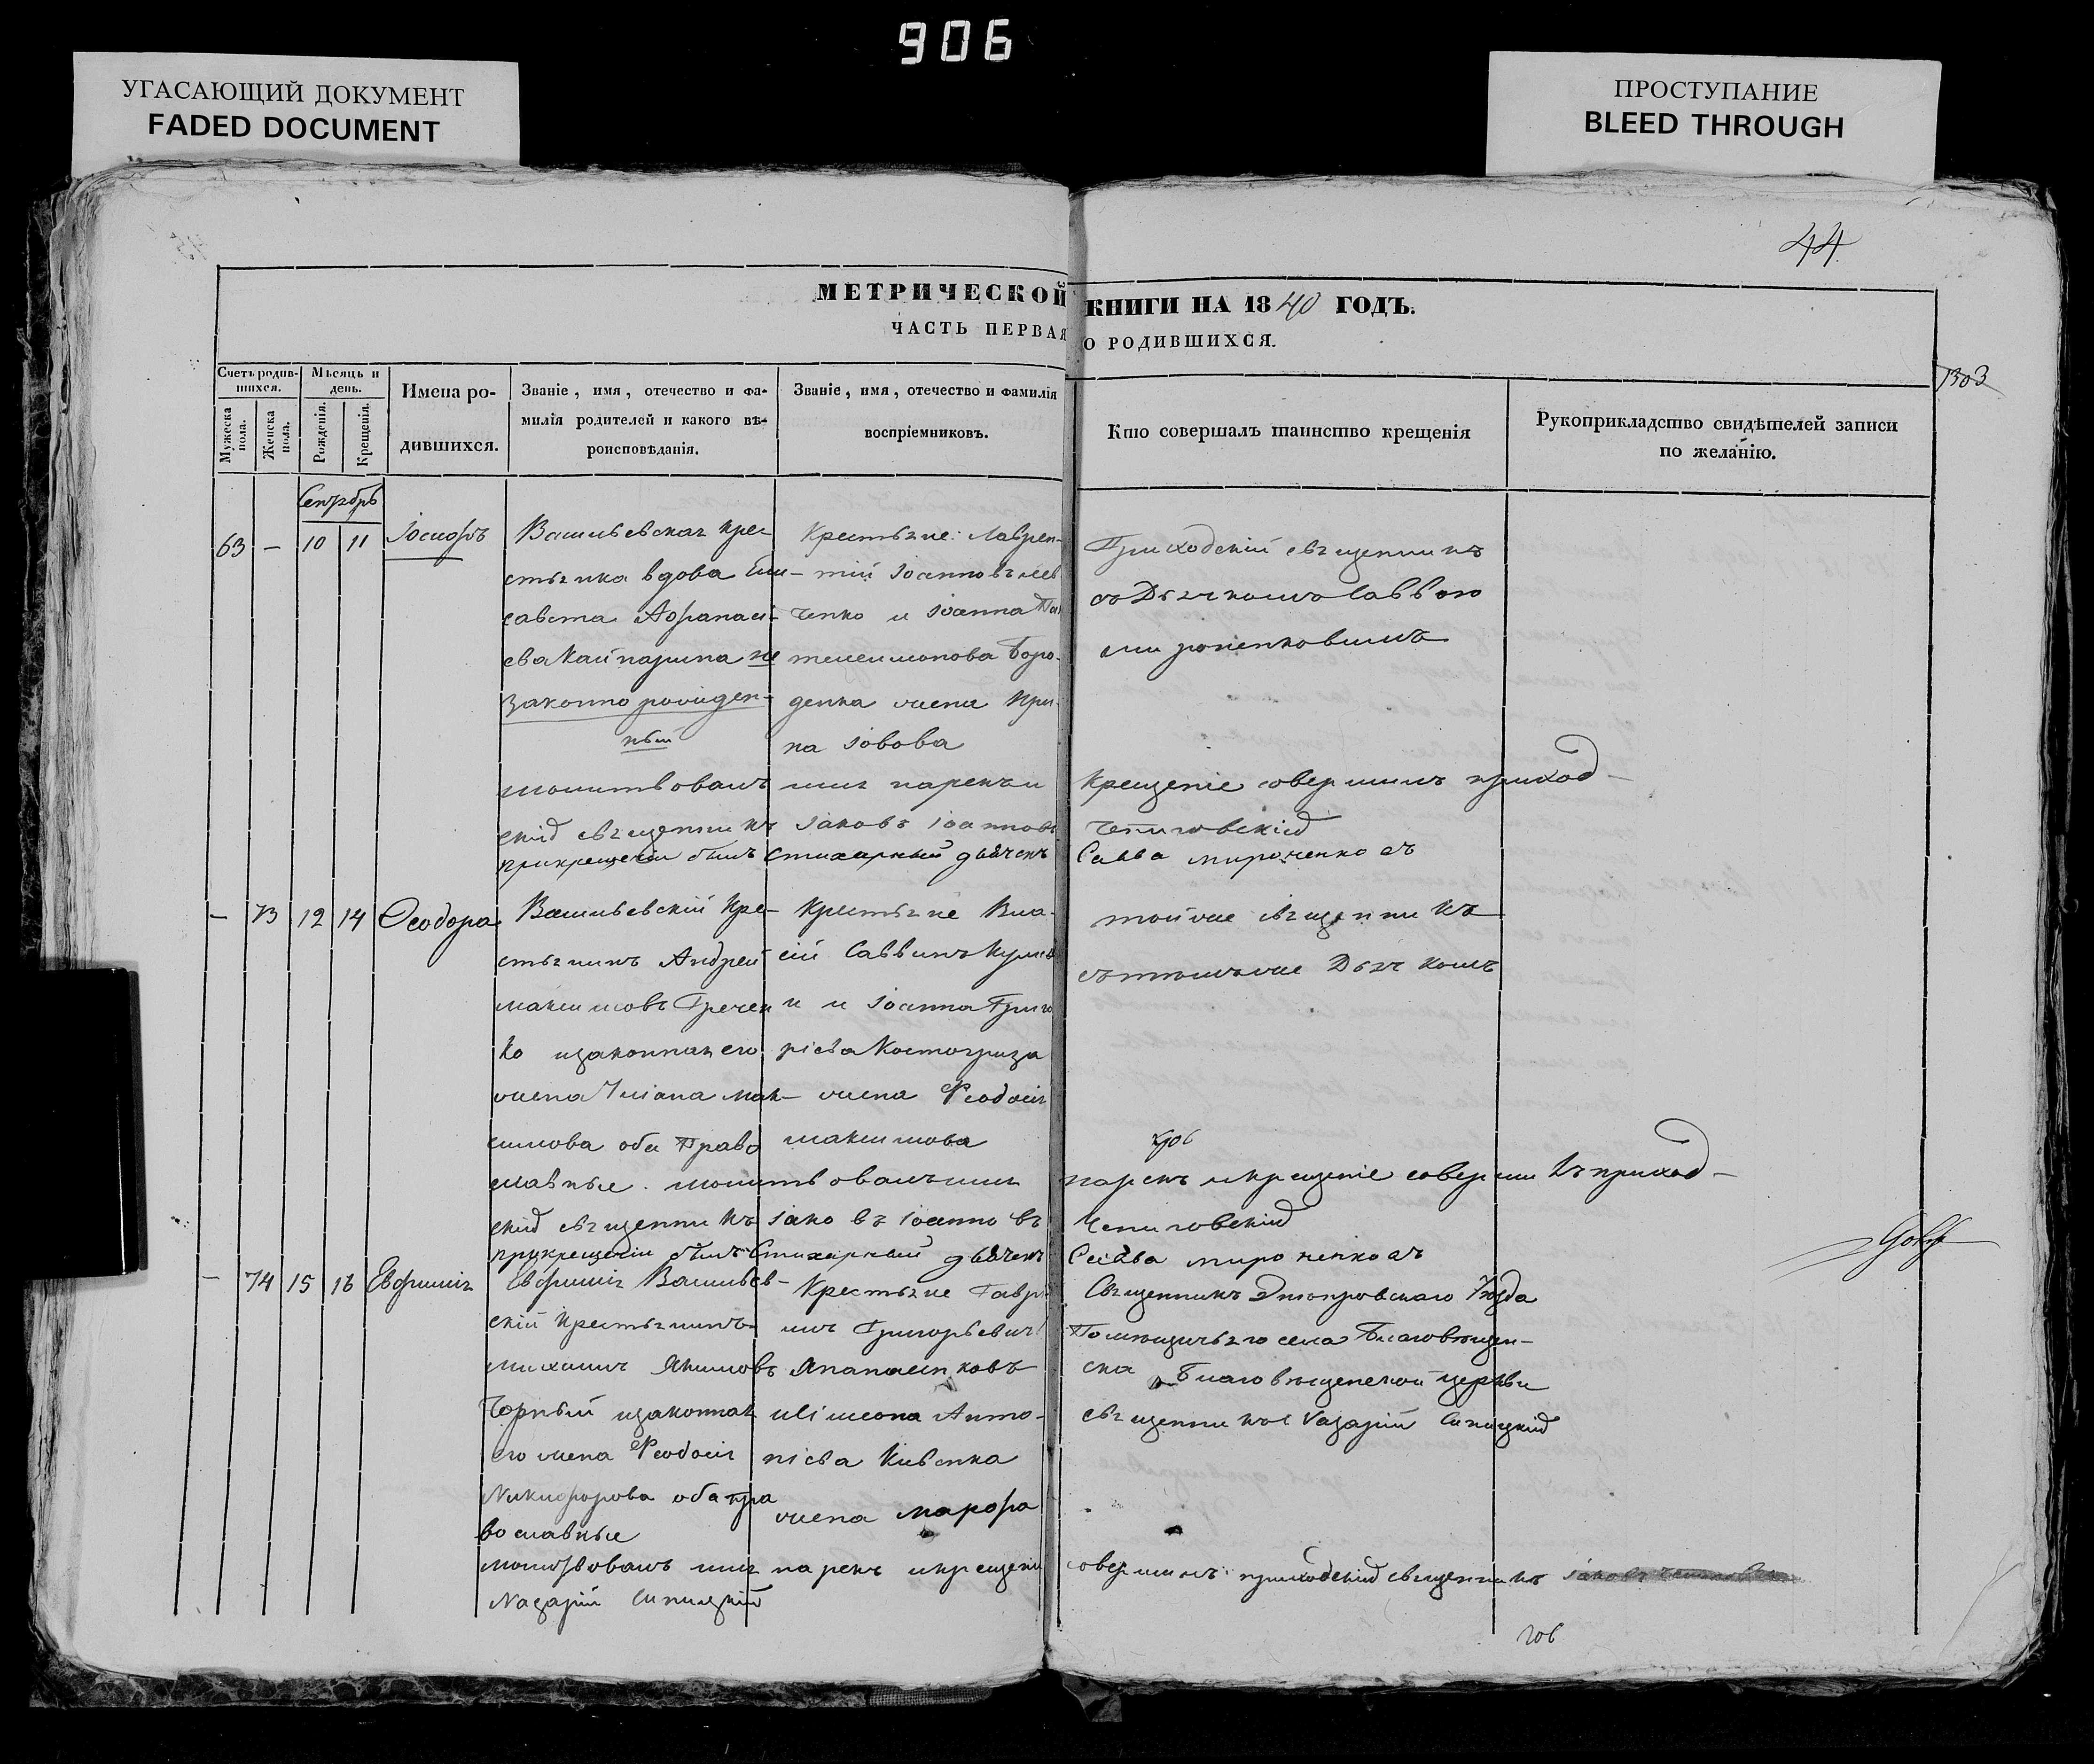 906
УГАСАЮЩИЙ ДОКУМЕНТ
FADED DOCUMENT
ПРОСТУПАНИЕ
BLEED THROUGH
44
МЕТРИЧЕСКОЙ КНИГИ НА 1840 ГОДЪ.
ЧАСТЬ ПЕРВАЯ О РОДИВШИХСЯ.
Счетъ родившихся.
Мужеска пола.
Женска пола.
Мѣсяць и день.
Рожденія.
Крещенія.
Имена родившихся.
Званіе, имя, отечество и фамилія родителей и какого вѣроисповѣданія.
Званіе, имя, отечество и фамилія воспріемниковъ.
Кто совершалъ таинство крещенія
Рукоприкладство свидѣтелей записи по желанію.
Сентябрь
63 — 10 11 Іосифъ
Васильевская кре-
стьянка вдова Ели-
савета Афанасі-
ева не
законно рожден-
ный
молитвовалъ
скій священникъ
прикрещеніи былъ
Крестьяне: Лаврен-
тій Іоанновъ
ченко и Іоанна
телеимонова Боро-
денка жена Ири-
на Іовова
имя нарекъ и
Іаковъ Іоанновъ
стихарный дьячекъ
Приходскій священникъ
съ Дьячкомъ Саввою
Мироненковымъ
Крещеніе совершилъ приход-
Чепиговскій
Савва Мироненко
— 73 12 14 Ѳеодора
Васильевскій Кре-
стьянинъ Андрей
Максимовъ Гречен
ко изаконная его
жена Іуліана Мак-
симова оба Право
славные. молитвовалъ имя
скій священникъ Іаковъ Іоанновъ
прикрещеніи былъ Стихарный дьячекъ
Крестьяне Вла-
сій Саввинъ
и Іоанна Григо
ріева Костогриза
жена Ѳеодосія
Максимова
тойже священникъ
сътѣмъже Дьячкомъ
нарекъ икрещеніе совершилъ приход-
Чепиговскій
Савва Мироненко
— 74 15 16 Евфимія
Васильев-
скій Крестьянинъ
Михаилъ Якимовъ
Чорный изаконная
его жена Ѳеодосія
Никифорова оба пра
вославные
молитвовалъ имя нарекъ икрещеніе
Назарій Синицкій
Крестьяне Гаври
илъ Григорьевичъ
Апанасенковъ
Антo-
ніева
жена Марфа
Священникъ Днѣпровскаго Уѣзда
Помѣщичьяго села Благовѣщен-
ска Благовѣщенской церкви
священникъ Назарій Синицкій
совершилъ приходскій священникъ